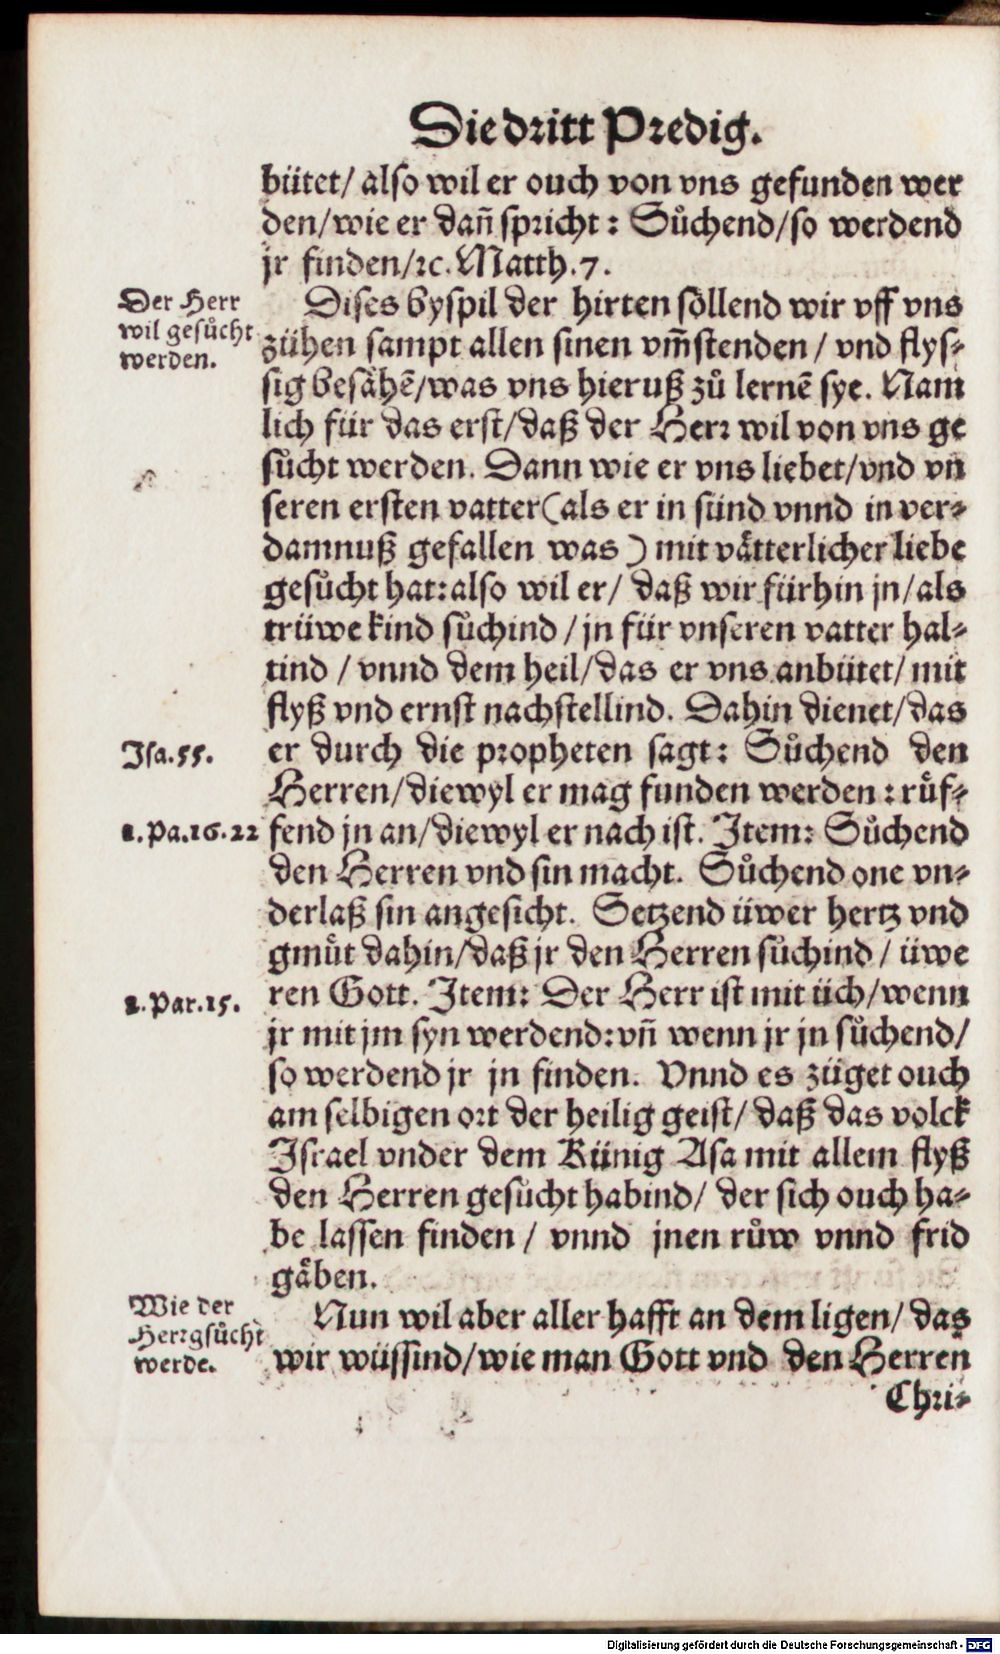 Die dritt Predig.
bütet/ also wil er ouch von vns gefunden wer
den/wie er dañ spricht: Sůchend/so werdend
jr finden/ꝛc. Matth.7.
Der Herr
wil gesůcht
werden.
Dises byspil der hirten söllend wir vff vns
zühen sampt allen sinen vm̃stenden / vnd flys-
sig besähẽ/was vns hieruß zů lernẽ sye. Nam
lich für das erst/daß der Herr wil von vns ge
sůcht werden. Dann wie er vns liebet/vnd vn
seren ersten vatter(als er in sünd vnnd in ver-
damnuß gefallen was) mit vätterlicher liebe
gesůcht hat:also wil er/ daß wir fürhin jn/als
trüwe kind sůchind / jn für vnseren vatter hal-
tind / vnnd dem heil/das er vns anbütet/ mit
flyß vnd ernst nachstellind. Dahin dienet/das
Isa.55.
er durch die propheten sagt: Sůchend den
Herren/diewyl er mag funden werden: rüf-
1.Pa.16.22
fend jn an/diewyl er nach ist. Item: Sůchend
den Herren vnd sin macht. Sůchend one vn-
derlaß sin angesicht. Setzend üwer hertz vnd
gmüt dahin/daß jr den Herren sůchind / üwe
2.Par.15.
ren Gott. Item: Der Herr ist mit üch/wenn
jr mit jm syn werdend:vñ wenn jr jn sůchend/
so werdend jr jn finden. Vnnd es züget ouch
am selbigen ort der heilig geist/ daß das volck
Israel vnder dem Künig Asa mit allem flyß
den Herren gesůcht habind/ der sich ouch ha-
be lassen finden / vnnd jnen růw vnnd frid
gäben.
Wie der
Herr gsůcht
werde.
Nun wil aber aller hafft an dem ligen/ das
wir wüssind/wie man Gott vnd den Herren
Chri-
Digitalisierung gefördert durch die Deutsche Forschungsgemeinschaft - DFG